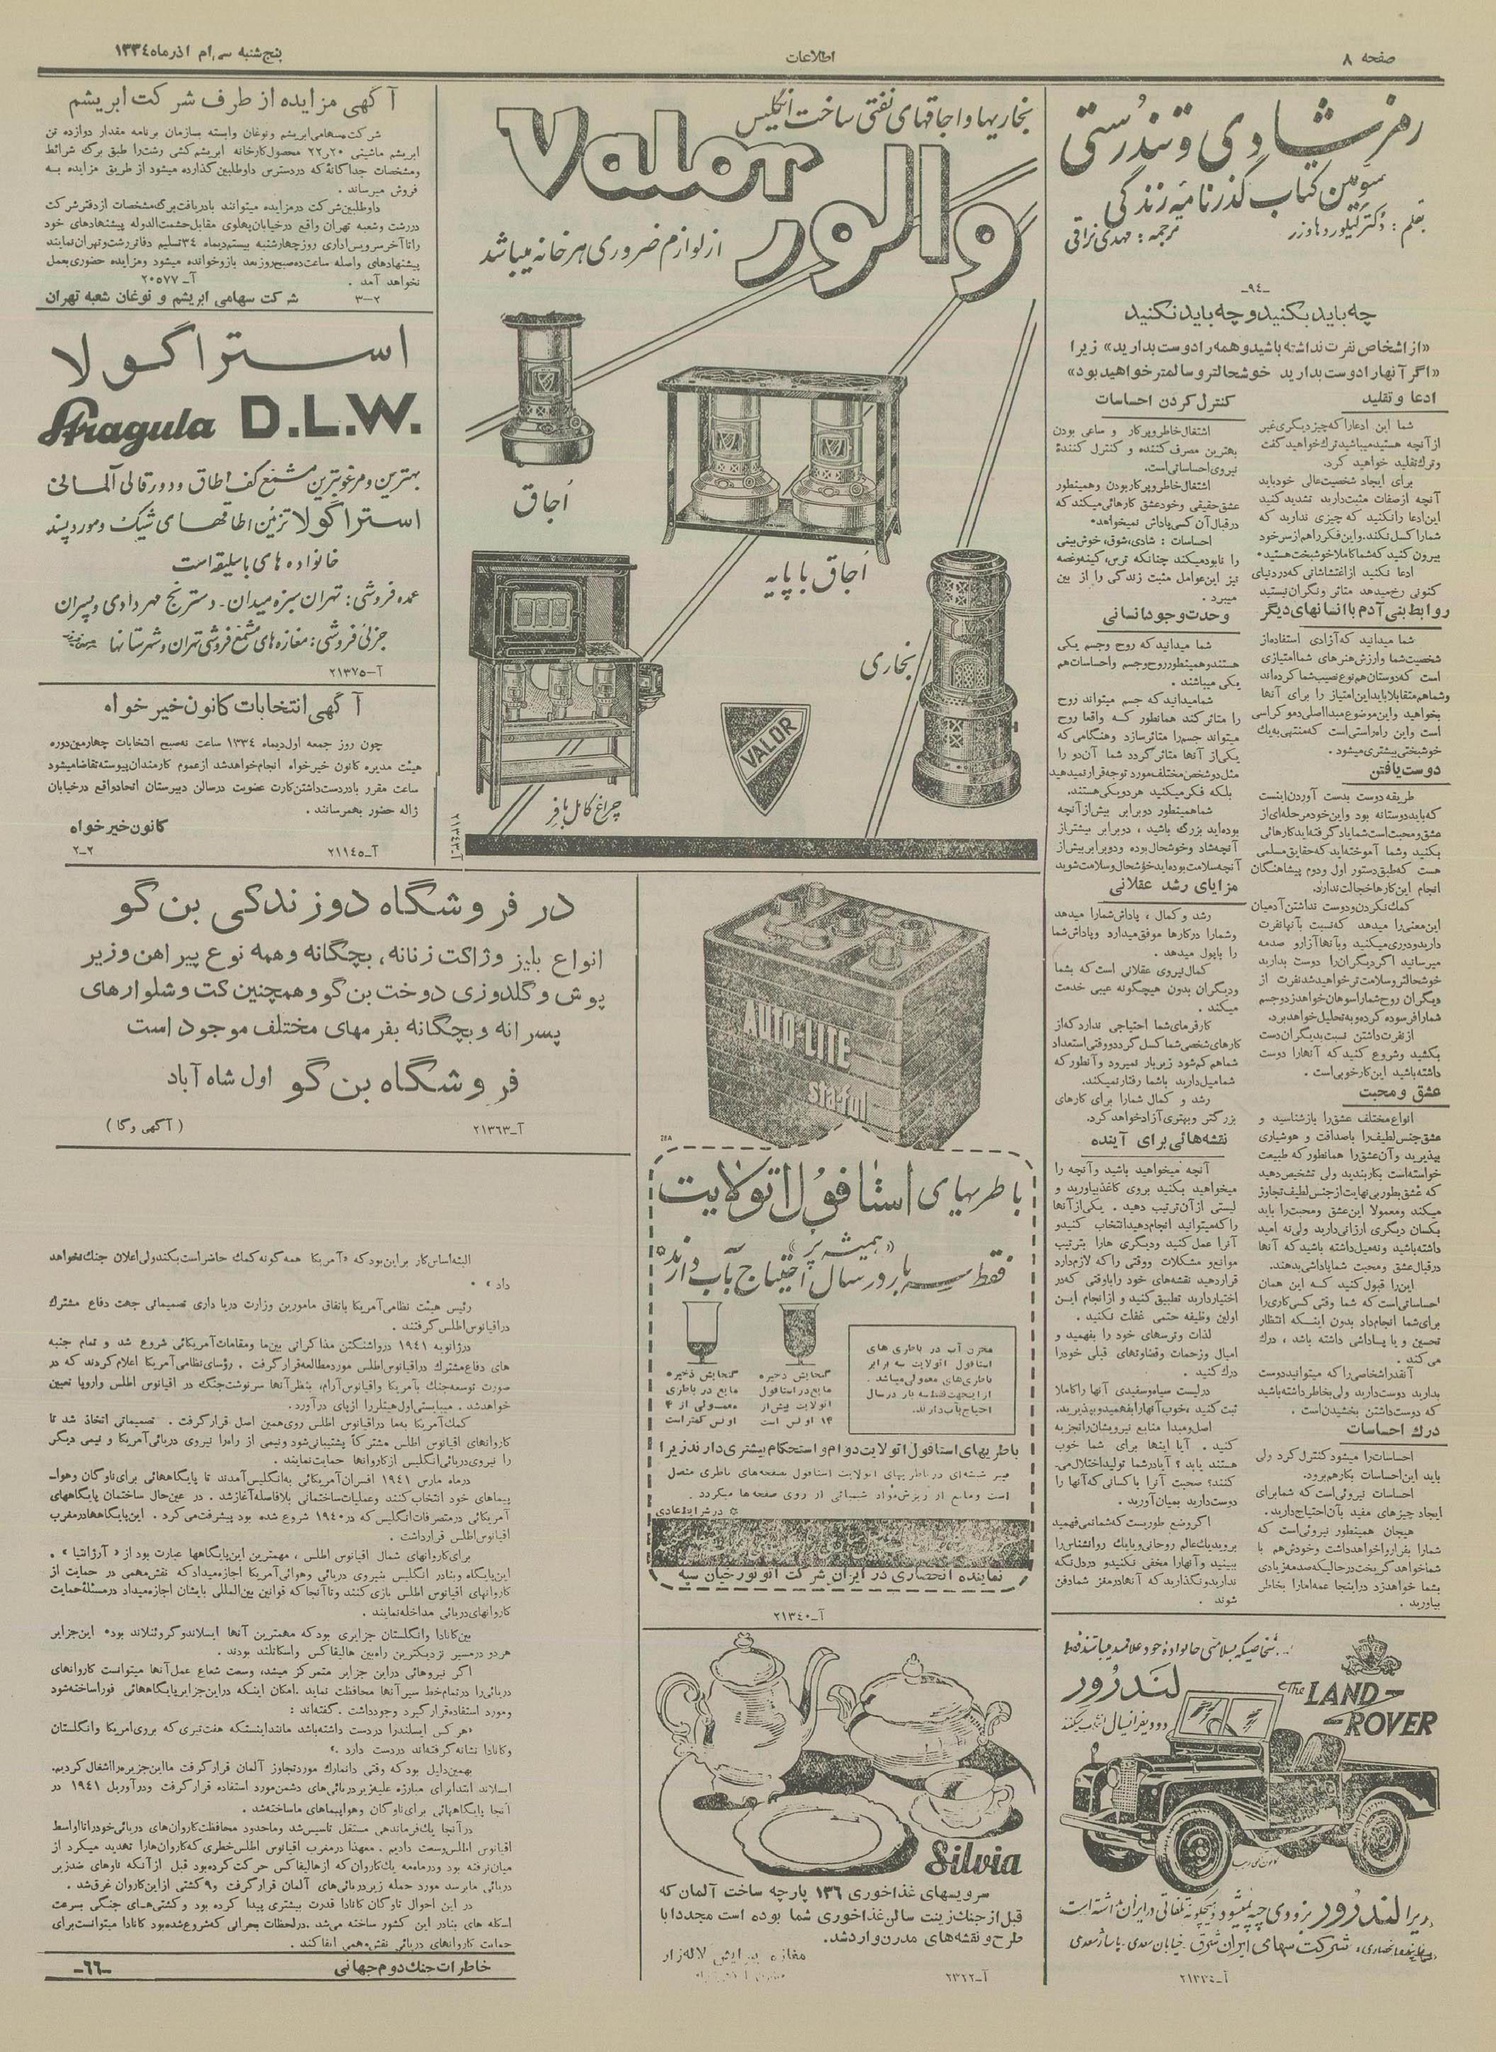 صفحه ۸
اطلاعات
پنج‌شنبه سی‌ام آذرماه ۱۳۳٤
رمز شادی و تندرستی
سومین کتاب گذرنامهٔ زندگی
ترجمه: مهدی نراقی
-۹٤-
چه باید بکنید و چه باید نکنید
«از اشخاص نفرت نداشته باشید و همه را دوست بدارید» زیرا
«اگر آنها را دوست بدارید خوشحالتر و سالمتر خواهید بود»
ادعا و تقلید
شما این ادعا را که چیز دیگری غیر
از آنچه هستید میباشید ترك خواهید گفت
و ترك تقلید خواهید کرد.
برای ایجاد شخصیت عالی خود باید
آنچه از صفات مثبت دارید تشدید کنید
این ادعا را نکنید که چیزی ندارید که
شما را کسل نکند. و این فکر را هم از سر خود
بیرون کنید که شما کاملا خوشبخت هستید.
ادعا نکنید از اغتشاشاتی که در دنیای
کنونی رخ میدهد متاثر و نگران نیستید
روابط بنی آدم با انسانهای دیگر
شما میدانید که آزادی استفاده از
شخصیت شما و ارزش هنر های شما امتیازی
است که دوستان هم نوع نصیب شما کرده‌اند
و شما هم متقابلا باید این امتیاز را برای آنها
بخواهید و این موضوع مبدا اصلی دموکراسی
است و این راه راستی است که منتهی به یك
خوشبختی بیشتری میشود.
دوست یافتن
طریقه دوست بدست آوردن اینست
که باید دوستانه بود و این خود مرحله‌ای از
عشق و محبت است شما یاد گرفته‌اید کارهائی
بکنید و شما آموخته‌اید که حقایق مسلمی
هست که طبق دستور اول و دوم پیشاهنگان
انجام این کارها خجالت ندارد.
کمك نکردن و دوست نداشتن آدمیان
این معنی را میدهد که نسبت بآنها نفرت
دارید و دوری میکنید و بآنها آزار و صدمه
میرسانید اگر دیگران را دوست بدارید
خوشحالتر و سلامت تر خواهید شد نفرت از
دیگران روح شما را سوهان خواهد زد و جسم
شما را فرسوده کرده و به تحلیل خواهد برد.
از نفرت داشتن نسبت بدیگران دست
بکشید و شروع کنید که آنها را دوست
داشته باشید این کار خوبی است.
عشق و محبت
انواع مختلف عشق را باز شناسید و
عشق جنس لطیف را با صداقت و هوشیاری
بپذیرید و آن عشق را همانطور که طبیعت
خواسته است بکار بندید ولی تشخیص دهید
که عشق بطور بی نهایت از جنس لطیف تجاوز
میکند و معمولا این عشق و محبت را باید
یکسان دیگری ارزانی دارید ولی نه امید
داشته باشید و نه میل داشته باشید که آنها
در قبال عشق و محبت شما پاداشی بدهند.
این را قبول کنید که این همان
احساساتی است که شما وقتی کسی کاری را
برای شما انجام داد بدون اینکه انتظار
تحسین و یا پاداشی داشته باشد، درك
می کند.
آنقدر اشخاصی را که میتوانید دوست
بدارید دوست دارید ولی بخاطر داشته باشید
که دوست داشتن بخشیدن است.
درك احساسات
احساسات را میشود کنترل کرد ولی
باید این احساسات بکار هم برود.
احساسات نیروئی است که شما برای
ایجاد چیزهای مفید بآن احتیاج دارید.
هیجان همینطور نیروئی است که
شما را بفرار وا خواهد داشت و خودش هم با
شما خواهد گریخت در حالیکه صدمه زیادی
بشما خواهد زد در اینجا عمه امارا بخاطر
بیاورید.
کنترل کردن احساسات
اشتغال خاطر و پر کار و ساعی بودن
بهترین مصرف کننده و کنترل کنندهٔ
نیروی احساساتی است.
اشتغال خاطر و پر کار بودن و همینطور
عشق حقیقی و خود عشق کارهائی میکند که
در قبال آن کسی پاداش نمیخواهد.
احساسات: شادی، شوق، خوش بینی
را نابود میکند چنانکه ترس، کینه و غصه
نیز این عوامل مثبت زندگی را از بین
میبرد.
وحدت وجود انسانی
شما میدانید که روح و جسم یکی
هستند و همینطور روح و جسم و احساسات هم
یکی میباشند.
شما میدانید که جسم میتواند روح
را متاثر کند همانطور که واقعا روح
میتواند جسم را متاثر سازد و هنگامی که
یکی از آنها متاثر گردد شما آن دو را
مثل دو شخص مختلف مورد توجه قرار نمیدهید
بلکه فکر میکنید هر دو یکی هستند.
شما همینطور دو برابر بیش از آنچه
بوده‌اید بزرگ باشید، دو برابر بیشتر از
آنچه شاد و خوشحال بوده و دو برابر بیش از
آنچه سلامت بوده‌اید خوشحال و سلامت شوید
مزایای رشد عقلانی
رشد و کمال، پاداش شما را میدهد
و شما را در کارها موفق میدارد و پاداش شما
را با پول میدهد.
کمال نیروی عقلانی است که بشما
و دیگران بدون هیچگونه عیبی خدمت
میکند.
کارفرمای شما احتیاجی ندارد که از
کارهای شخصی شما کسل گردد و وقتی استعداد
شما هم کم شود زیر بار نمیرود و آنطور که
شما میل دارید با شما رفتار نمیکند.
رشد و کمال شما را برای کارهای
بزرگتر و بهتری آزاد خواهد کرد.
نقشه هائی برای آینده
آنچه میخواهید باشید و آنچه را
میخواهید بکنید بروی کاغذ بیاورید و
لیستی از آن ترتیب دهید. یکی از آنها
را که میتوانید انجام دهید انتخاب کنید و
آنرا عمل کنید و دیگری هارا بترتیب
موانع و مشکلات و وقتی را که لازم دارد
قرار دهید نقشه های خود را با وقتی که در
اختیار دارید تطبیق کنید و از انجام این
اولین وظیفه حتمی غفلت نکنید.
لذات و ترسهای خود را بفهمید و
امیال و زحمات و قضاوتهای قبلی خود را
درك کنید.
در لیست سیاه و سفیدی آنها را کاملا
ثبت کنید، خوب آنها را بفهمید و بپذیرید.
اصل و مبدا منابع نیرویشان را تجزیه
کنید. آیا اینها برای شما خوب
هستند یا بد؟ آیا در شما تولید اختلال می-
کنند؟ صحبت آنرا با کسانی که آنها را
دوست دارید بمیان آورید.
اگر وضع طوریست که شما نمی فهمید
بروید یك عالم روحانی و یا یك روانشناس را
ببینید و آنها را مخفی نکنید و در دل نگه
ندارید و نگذارید که آنها در مغز شما دفن
شوند.
بخاریها و اجاقهای نفتی ساخت انگلیس
Valor
والور
از لوازم ضروری هر خانه میباشد
اجاق
اجاق با پایه
بخاری
VALOR
چراغ کامل با فر
آ-۲۱۳٤۳
آگهی مزایده از طرف شرکت ابریشم
شرکت سهامی ابریشم و نوغان وابسته بسازمان برنامه مقدار دوازده تن
ابریشم ماشینی ۲۰ر۲۲ محصول کارخانه ابریشم کشی رشت را طبق برگ شرائط
و مشخصات جداگانهٔ که در دسترس داوطلبین گذارده میشود از طریق مزایده به
فروش میرساند.
داوطلبین شرکت در مزایده میتوانند با دریافت برگ مشخصات از دفتر شرکت
در رشت و شعبه تهران واقع در خیابان پهلوی مقابل حشمت الدوله پیشنهادهای خود
را تا آخر سرویس اداری روز چهارشنبه بیستم دیماه ۳٤ تسلیم دفاتر رشت و تهران نمایند
پیشنهادهای واصله ساعت ده صبح روز بعد باز و خوانده میشود و مزایده حضوری بعمل
نخواهد آمد. آ-۲۰۵۷۷
۲-۳ شرکت سهامی ابریشم و نوغان شعبه تهران
استراگولا
Stragula D.L.W.
بهترین و مرغوبترین مشمع کف اطاق و دور قالی آلمانی
استراگولا تزئین اطاقهای شیك و مورد پسند
خانواده های با سلیقه است
عمده فروشی: تهران سبزه میدان - دسترنج مهردادی و پسران
جزئی فروشی: مغازه های مشمع فروشی تهران و شهرستانها
آ-۲۱۳۷۵
آگهی انتخابات کانون خیرخواه
چون روز جمعه اول دیماه ۱۳۳٤ ساعت نه صبح انتخابات چهارمین دوره
هیئت مدیره کانون خیرخواه انجام خواهد شد از عموم کارمندان پیوسته تقاضا میشود
ساعت مقرر با در دست داشتن کارت عضویت در سالن دبیرستان اتحاد واقع در خیابان
ژاله حضور بهمرسانند.
کانون خیرخواه
آ-۲۱۱٤۵ ۲-۲
در فروشگاه دوزندگی بن گو
انواع بلیز و ژاکت زنانه، بچگانه و همه نوع پیراهن و زیر
پوش و گلدوزی دوخت بن گو و همچنین کت و شلوارهای
پسرانه و بچگانه بفرمهای مختلف موجود است
فروشگاه بن گو اول شاه آباد
آ-۲۱۳٦۳ (آگهی وگا)
AUTO-LITE
sta-ful
باطریهای استافول اتولایت
«همیشه پر»
فقط سه بار در سال احتیاج بآب دارند*
مخزن آب در باطری های
استافول اتولایت سه برابر
باطری‌های معمولی میباشد.
از اینجهت فقط سه بار در سال
احتیاج بآب دارند.
گنجایش ذخیره
مایع در استافول
اتولایت بیش از
۱۴ اونس است
گنجایش ذخیره
مایع در باطری
معمولی از ۴
اونس کمتر است
باطریهای استافول اتولایت دوام و استحکام بیشتری دارند زیرا
فیبر شیشه‌ای در باطریهای اتولایت استافول بصفحه‌های باطری متصل
است و مانع از ریزش مواد شیمیائی از روی صفحه ها میگردد.
* در شرایط عادی
نماینده انحصاری در ایران شرکت اتونور خیابان سپه
آ-۲۱۳٤۰
Silvia
سرویسهای غذاخوری ۱۳٦ پارچه ساخت آلمان که
قبل از جنك زینت سالن غذاخوری شما بوده است مجددا با
طرح و نقشه های مدرن وارد شد.
مغازه پیرایش لاله‌زار
The LAND-ROVER
لندرور
زیرا لندرور بزودی چیه نمیشود و هیچگونه تلفاتی در ایران نداشته است
شرکت سهامی ایران شرق - خیابان سعدی - پاساژ سعدی
البته اساس کار بر این بود که «آمریکا همه گونه کمك حاضر است بکند ولی اعلان جنك نخواهد
داد».
رئیس هیئت نظامی آمریکا باتفاق مامورین وزارت دریا داری تصمیماتی جهت دفاع مشترك
در اقیانوس اطلس گرفتند.
در ژانویه ۱۹٤۱ در واشنگتن مذاکراتی بین ما و مقامات آمریکائی شروع شد و تمام جنبه
های دفاع مشترك در اقیانوس اطلس مورد مطالعه قرار گرفت. رؤسای نظامی آمریکا اعلام کردند که در
صورت توسعه جنك بآمریکا و اقیانوس آرام، بنظر آنها سرنوشت جنك در اقیانوس اطلس و اروپا تعیین
خواهد شد. میبایستی اول هیتلر را از پای درآورد.
کمك آمریکا بما در اقیانوس اطلس روی همین اصل قرار گرفت. تصمیماتی اتخاذ شد تا
کاروانهای اقیانوس اطلس مشترکاً پشتیبانی شود و نیمی از راه را نیروی دریائی آمریکا و نیمی دیگر
را نیروی دریائی انگلیس از کاروانها حمایت نمایند.
در ماه مارس ۱۹٤۱ افسران آمریکائی به انگلیس آمدند تا پایگاههائی برای ناوگان و هوا-
پیماهای خود انتخاب کنند و عملیات ساختمانی بلافاصله آغاز شد. در عین حال ساختمان پایگاههای
آمریکائی در متصرفات انگلیس که در ۱۹٤۰ شروع شده بود پیشرفت می کرد. این پایگاهها در مغرب
اقیانوس اطلس قرار داشت.
برای کاروانهای شمال اقیانوس اطلس، مهمترین این پایگاهها عبارت بود از «آرژانتیا».
این پایگاه و بنادر انگلیس بنیروی دریائی و هوائی آمریکا اجازه میداد که نقش مهمی در حمایت از
کاروانهای اقیانوس اطلس بازی کنند و تا آنجا که قوانین بین‌المللی بایشان اجازه میداد در مسئله حمایت
کاروانهای دریائی مداخله نمایند.
بین کانادا و انگلستان جزایری بود که مهمترین آنها ایسلاند و گروئنلاند بود. این جزایر
هر دو در مسیر نزدیکترین راه بین هالیفاکس و اسکاتلند بودند.
اگر نیروهائی در این جزایر متمرکز میشد، وسعت شعاع عمل آنها میتوانست کاروانهای
دریائی را در تمام خط سیر آنها محافظت نماید. امکان اینکه در این جزایر پایگاههائی فورا ساخته شود
و مورد استفاده قرار گیرد وجود داشت. گفته‌اند:
«هر کس ایسلند را در دست داشته باشد مانند اینستکه هفت تیری که بروی امریکا و انگلستان
و کانادا نشانه گرفته‌اند در دست دارد.»
بهمین دلیل بود که وقتی دانمارك مورد تجاوز آلمان قرار گرفت ما این جزیره را اشغال کردیم.
ایسلاند ابتدا برای مبارزه علیه زیر دریائی‌های دشمن مورد استفاده قرار گرفت و در آوریل ۱۹٤۱ در
آنجا پایگاههائی برای ناوگان و هواپیماهای ما ساخته شد.
در آنجا یك فرماندهی مستقل تاسیس شد و ما حدود محافظت کاروان های دریائی خود را تا اواسط
اقیانوس اطلس وسعت دادیم. معهذا در مغرب اقیانوس اطلس خطری که کاروان‌ها را تهدید میکرد از
میان نرفته بود و در ماه مه یك کاروان که از هالیفاکس حرکت کرده بود قبل از آنکه ناوهای ضد زیر
دریائی ما برسد مورد حمله زیر دریائی‌های آلمان قرار گرفت و ۹ کشتی از این کاروان غرق شد.
در این احوال ناوگان کانادا قدرت بیشتری پیدا کرده بود و کشتی‌های جنگی بسرعت
اسکله های بنادر این کشور ساخته می‌شد. در لحظات بحرانی که شروع شده بود کانادا میتوانست برای
حمایت کاروانهای دریائی نقش مهمی ایفا کند.
خاطرات جنك دوم جهانی
-٦٦-